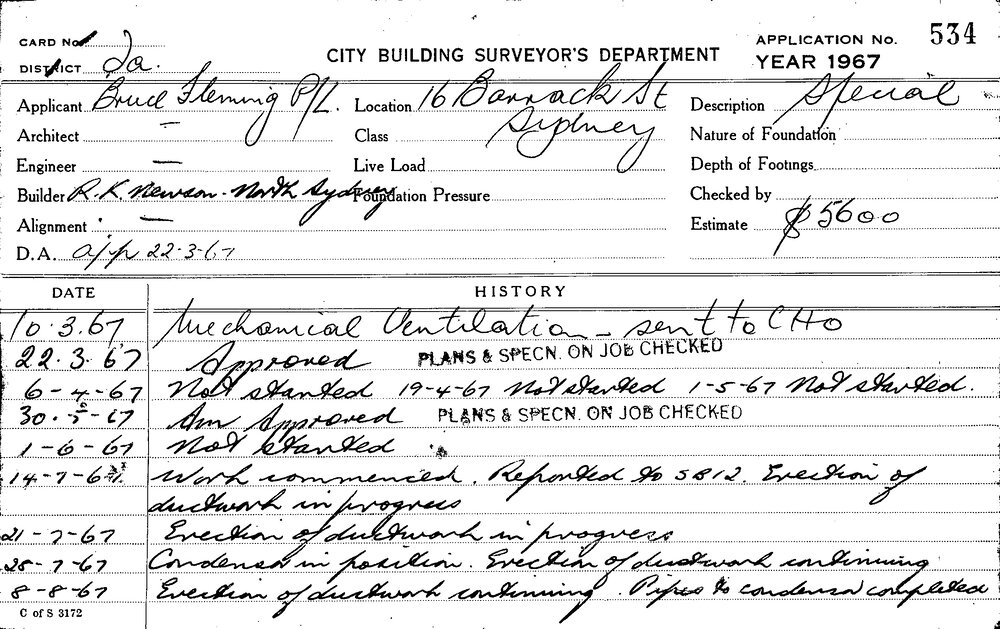 CARD No.
DISTRICT 2a.
CITY BUILDING SURVEYOR'S DEPARTMENT
APPLICATION No. 534
YEAR 1967
Applicant Bruce Fleming P/L. Location 16 Barrack St Description Special
Architect — Class Sydney Nature of Foundation
Engineer — Live Load Depth of Footings
Builder R.K. Newson. North Sydney Foundation Pressure Checked by
Alignment — Estimate $5600
D.A. app 22-3-67
DATE HISTORY
10.3.67 Mechanical Ventilation - sent to CHO
22.3.67 Approved PLANS & SPECN. ON JOB CHECKED
6-4-67 Not started 19-4-67 Not started 1-5-67 Not started.
30.5-67 Am Approved PLANS & SPECN. ON JOB CHECKED
1-6-67 Not started
14-7-67 Work commenced. Reported to SB12. Erection of
ductwork in progress
21-7-67 Erection of ductwork in progress
28-7-67 Condensa in position. Erection of ductwork continuing
8-8-67 Erection of ductwork continuing. Pipes to condensa completed
C of S 3172